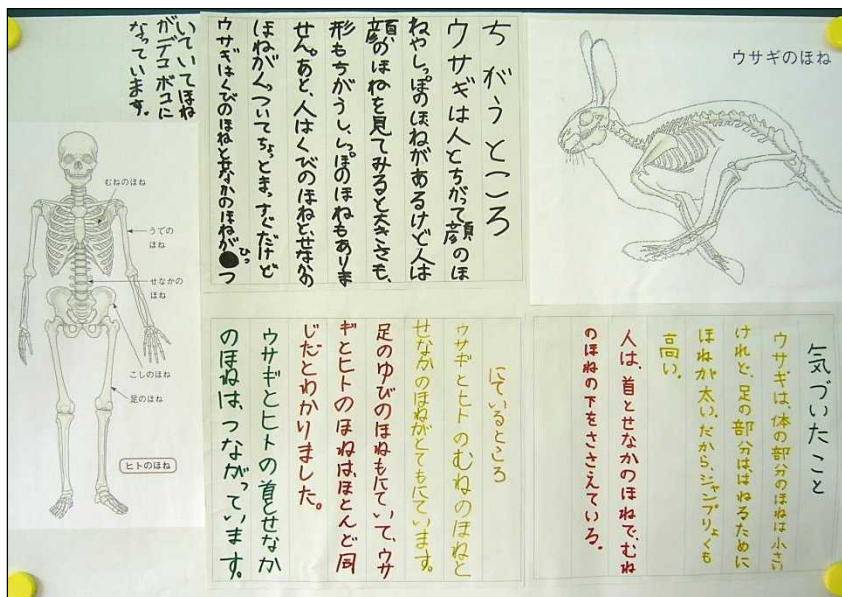 ウサギのほね
ちがうところ
ウサギは人とちがって顔のほ
ねやしっぽのほねがあるけど人は
顔のほねを見てみると大きさも、
形もちがうし、しっぽのほねもありま
せん。あと、人はくびのほねと、せなかの
ほねがくっついてちょっとまっすぐだけど
ウサギはくびのほねとせなかのほねがひっつ
いていてほね
がデコボコに
なっています。
気づいたこと
ウサギは、体の部分のほねは小さい
けれど、足の部分ははねるために
ほねが太い。だから、ジャンプりょくも
高い。
人は、首とせなかのほねで、むね
のほねの下をささえている。
にているところ
ウサギとヒトのむねのほねと
せなかのほねがとてもにています。
足のゆびのほねもにていて、ウサ
ギとヒトのほねは、ほとんど同
じだとわかりました。
ウサギとヒトの首とせなか
のほねは、つながっています。
むねのほね
うでの
ほね
せなかの
ほね
こしのほね
足のほね
ヒトのほね